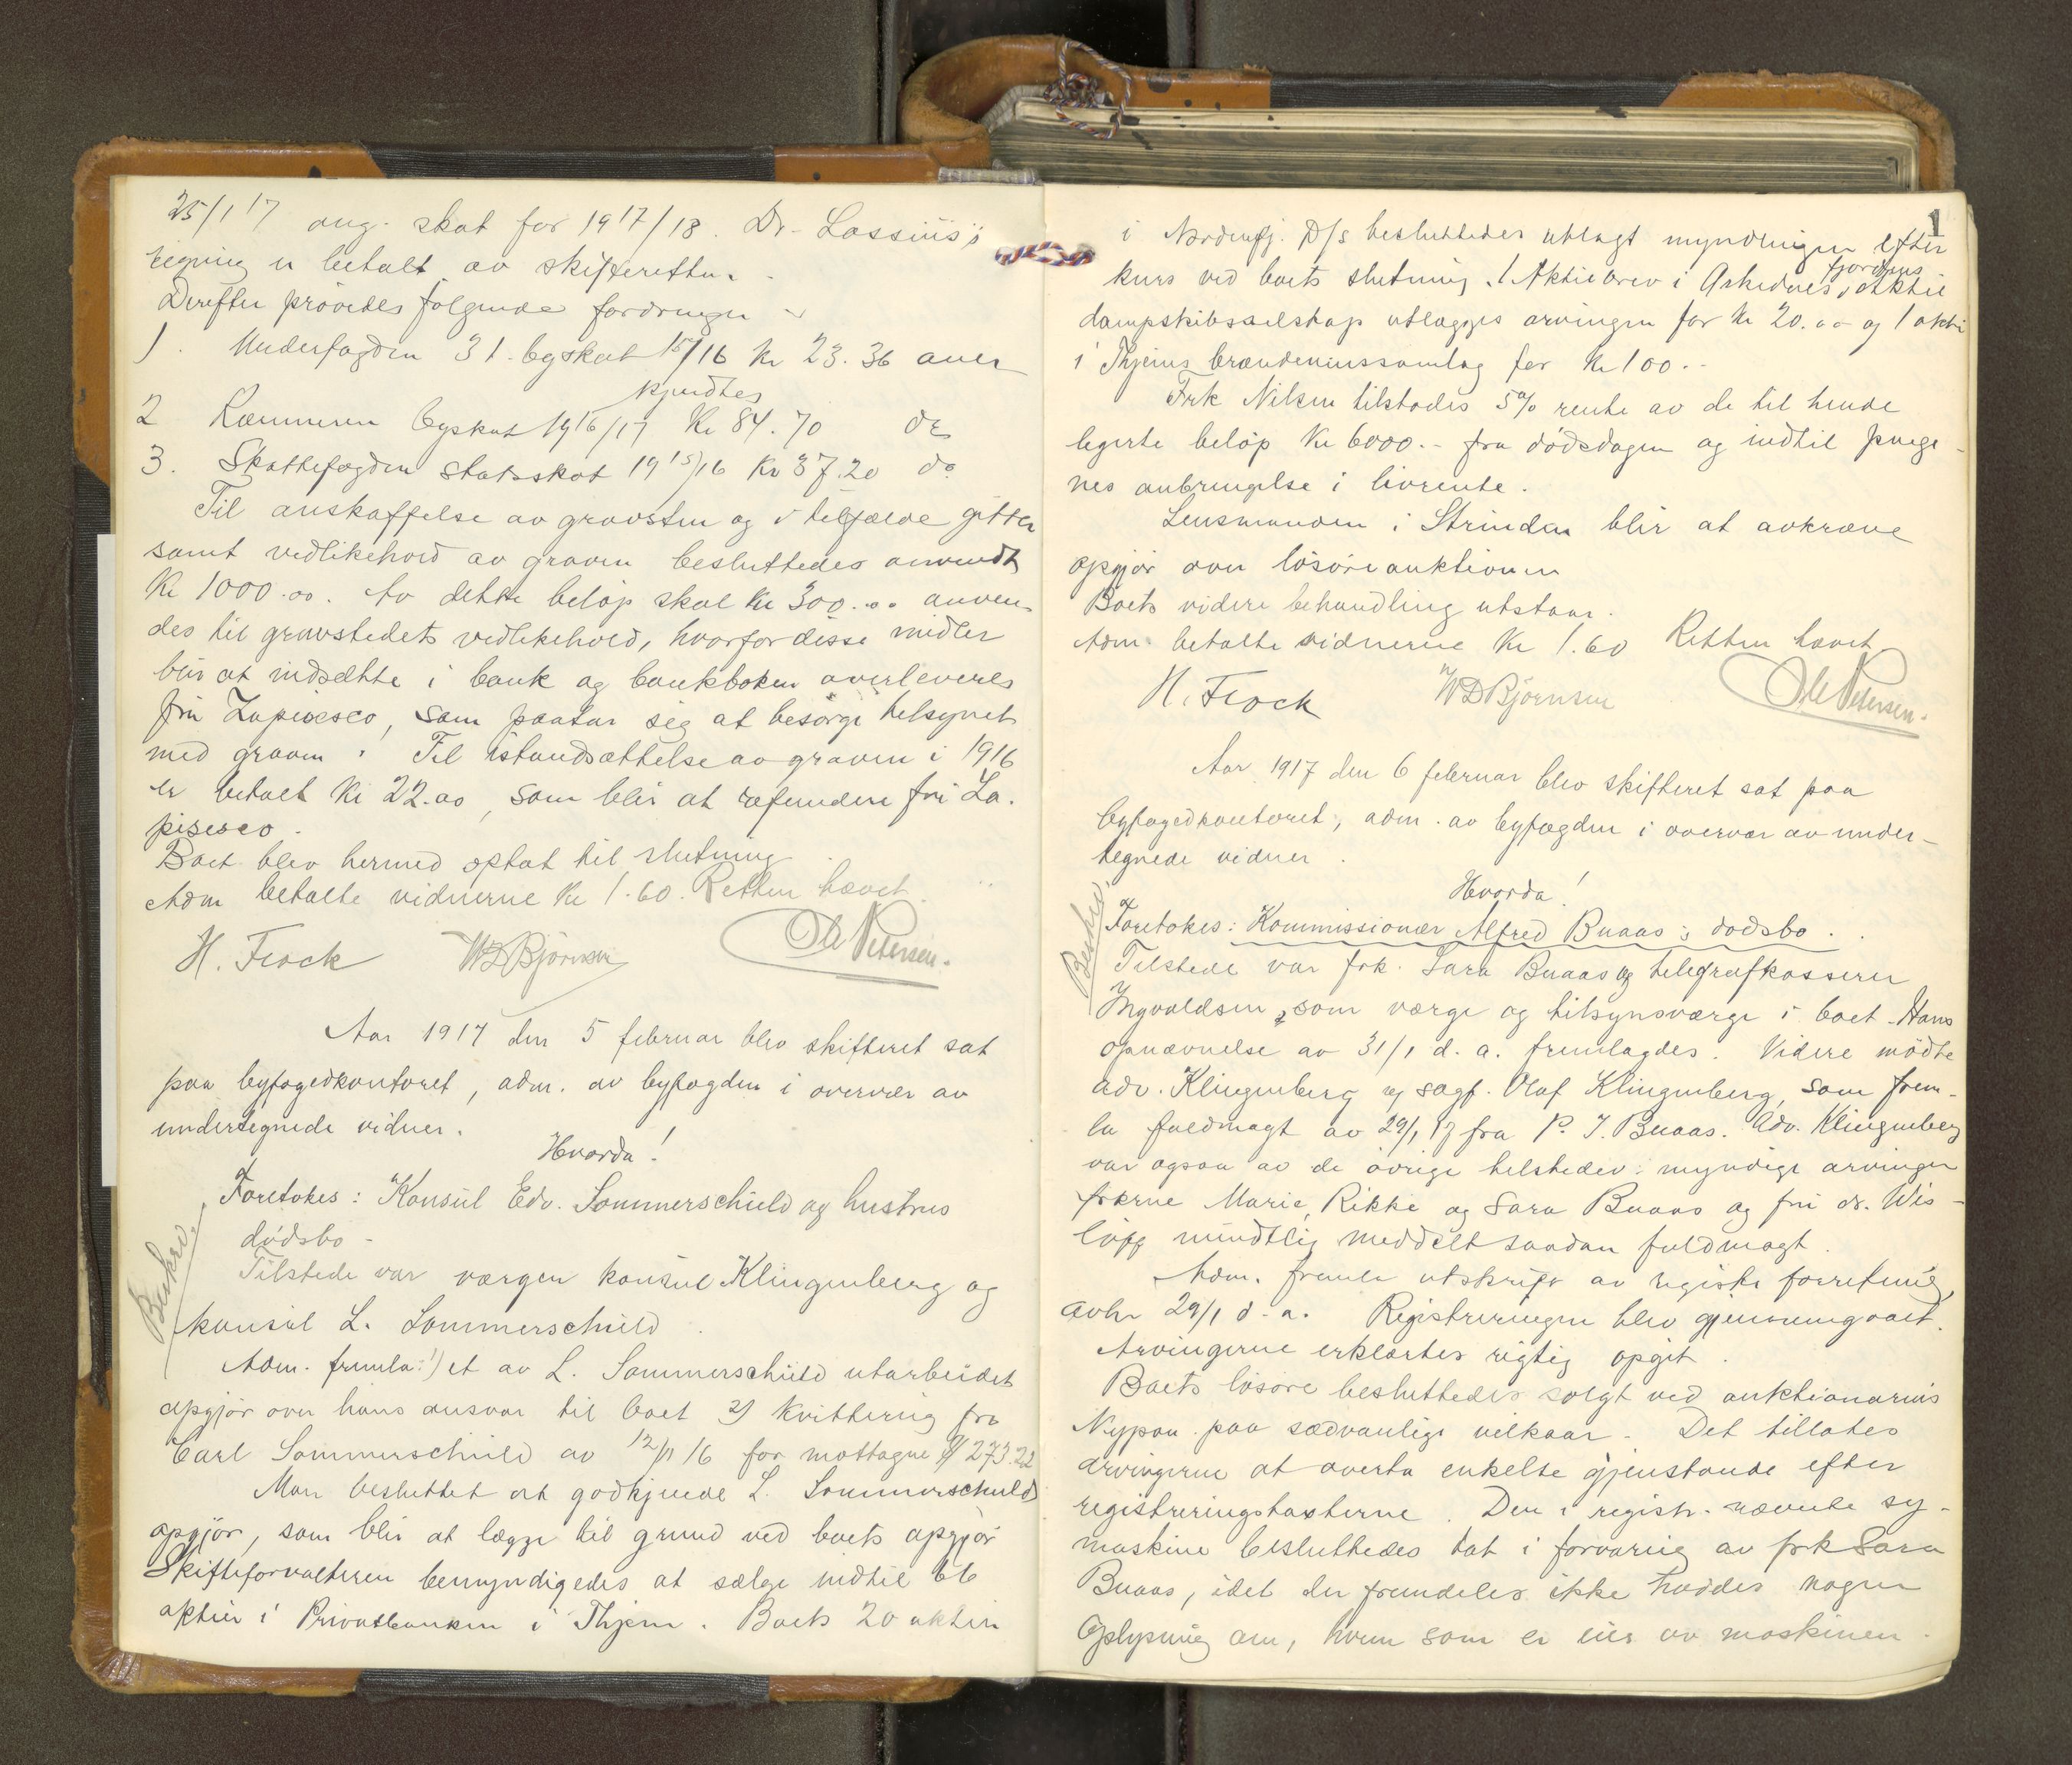 25/1 17 ang. skat for 1917/18. Dr. Lossius's
regning er betalt av skifteretten.
Derefter prövedes følgende fordringer
1. Underfogden 31. byskat 15/16 Kr 23.36 aner
kjendtes
2 Kæmneren byskat 1916/17 Kr 84.70 do
3. Skattefogden statsskat 1915/16 Kr 37.20 do
Til anskaffelse av gravsten og i tilfælde gitter
samt vedlikehold av graven besluttedes anvendt
Kr 1000.00. Av dette beløp skal Kr 300.00 anven-
des til gravstedets vedlikehold, hvorfor disse midler
blir at indsætte i bank og bankboken overleveres
fru Lapisesco, som paatar sig at besörge tilsynet
med graven. Til istandsættelse av graven i 1916
er betalt Kr 22.00, som blir at refundere fru La-
pisesco.
Boet blev hermed optat til slutning.
Adm betalte vidnerne Kr 1.60. Retten hævet.
H. Flock W D Björnsen Ole Petersen.
Aar 1917 den 5 februar blev skifteret sat
paa byfogedkontoret, adm. av byfogden i overvær av
undertegnede vidner.
Hvorda!
Foretokes: Konsul Edv. Sommerschield og hustrus
dödsbo -
Beskrev.
Tilstede var værgen konsul Klingenberg og
konsul L. Sommerschield.
Adm. fremla: 1) et av L. Sommerschield utarbeidet
opgjör over hans ansvar til boet 2) kvittering fra
Carl Sommerschield av 12/11 16 for mottagne £ 273.22
Man besluttet at godkjende L. Sommerschields
opgjör, som blir at lægge til grund ved boets opgjör
Skifteforvalteren bemyndigedes at sælge indtil 66
aktier i Privatbanken i Thjem. Boets 20 aktier
1
i Nordenfj. D/s besluttedes utlagt myndlingen efter
kurs ved boets slutning. 1 Aktiebrev i Arkednes, aktie
fjordens
dampskibsselskap utlægges arvingen for Kr 20.00 og 1 aktie
i Thjems brændevinssamlag for Kr 100.-
Frk Nilsen tilstodes 5% rente av de til hende
legerte belöp Kr 6000.- fra dödsdagen og indtil penge-
nes anbringelse i livrente.
Lensmanden i Strinden blir at avkræve
opgjör over lösöreauktionen
Boets videre behandling utstaar.
Adm. betalte vidnerne Kr 1.60 Retten hævet
H. Flock W D Björnsen Ole Petersen.
Aar 1917 den 6 februar blev skifteret sat paa
byfogedkontoret, adm. av byfogden i overvær av under-
tegnede vidner.
Hvorda!
Beskrev
Foretokes: Kommissionær Alfred Buaas's dödsbo.
Tilstede var frk. Sara Buaas og telegrafkasserer
Ingvaldsen, som værge og tilsynsværge i boet. Hans
opnævnelse av 31/1 d. a. fremlagdes. Videre mödte
adv. Klingenberg og sagf. Olaf Klingenberg, som frem-
la fuldmagt av 29/1 17 fra P. I. Buaas. Adv. Klingenberg
var ogsaa av de övrige tilsteder. myndige arvinger
frkrne Marie, Rikke og Sara Buaas og fru dr. Wis-
löff mundtlig meddelt saadan fuldmagt.
Adm. fremla utskrift av registr. forretning
avh. 29/1 d. a. Registreringen blev gjennemgaaet.
Arvingerne erklærtes rigtig opgit.
Boets lösöre besluttedes solgt ved auktionarius
Nypan paa sædvanlige vilkaar. Det tillates
arvingerne at overta enkelte gjenstande efter
registreringstaksterne. Den i registr. nævnte sy-
maskine besluttedes tat i forvaring av frk Sara
Buaas, idet der fremdeles ikke haddes nogen
oplysning om, hvem som er eier av maskinen.